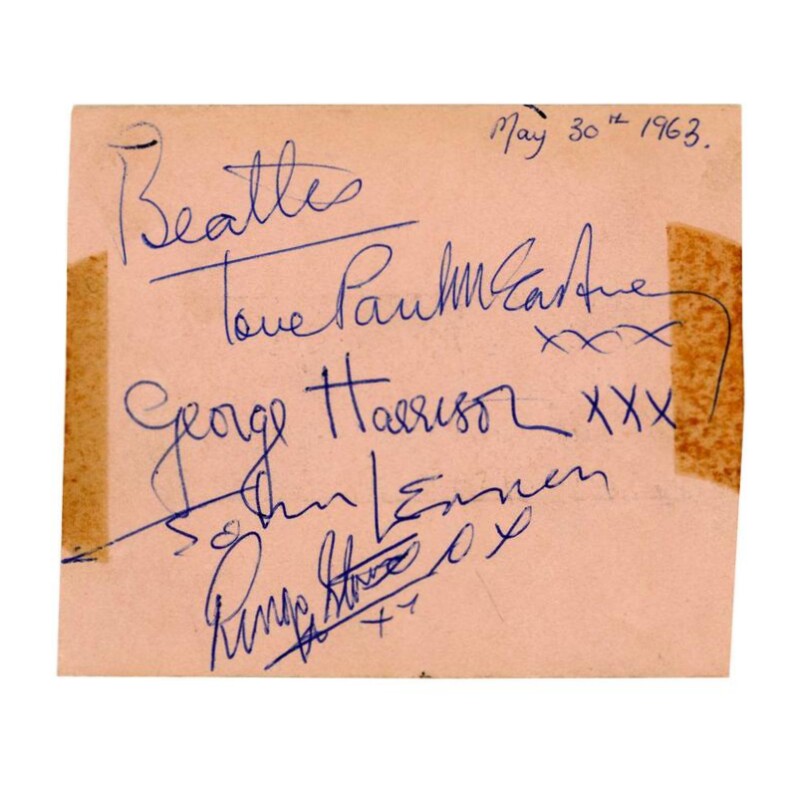 May 30th 1963.
Beatles
love Paul McCartney
xxx
George Harrison xxx
John Lennon
Ringo Starr